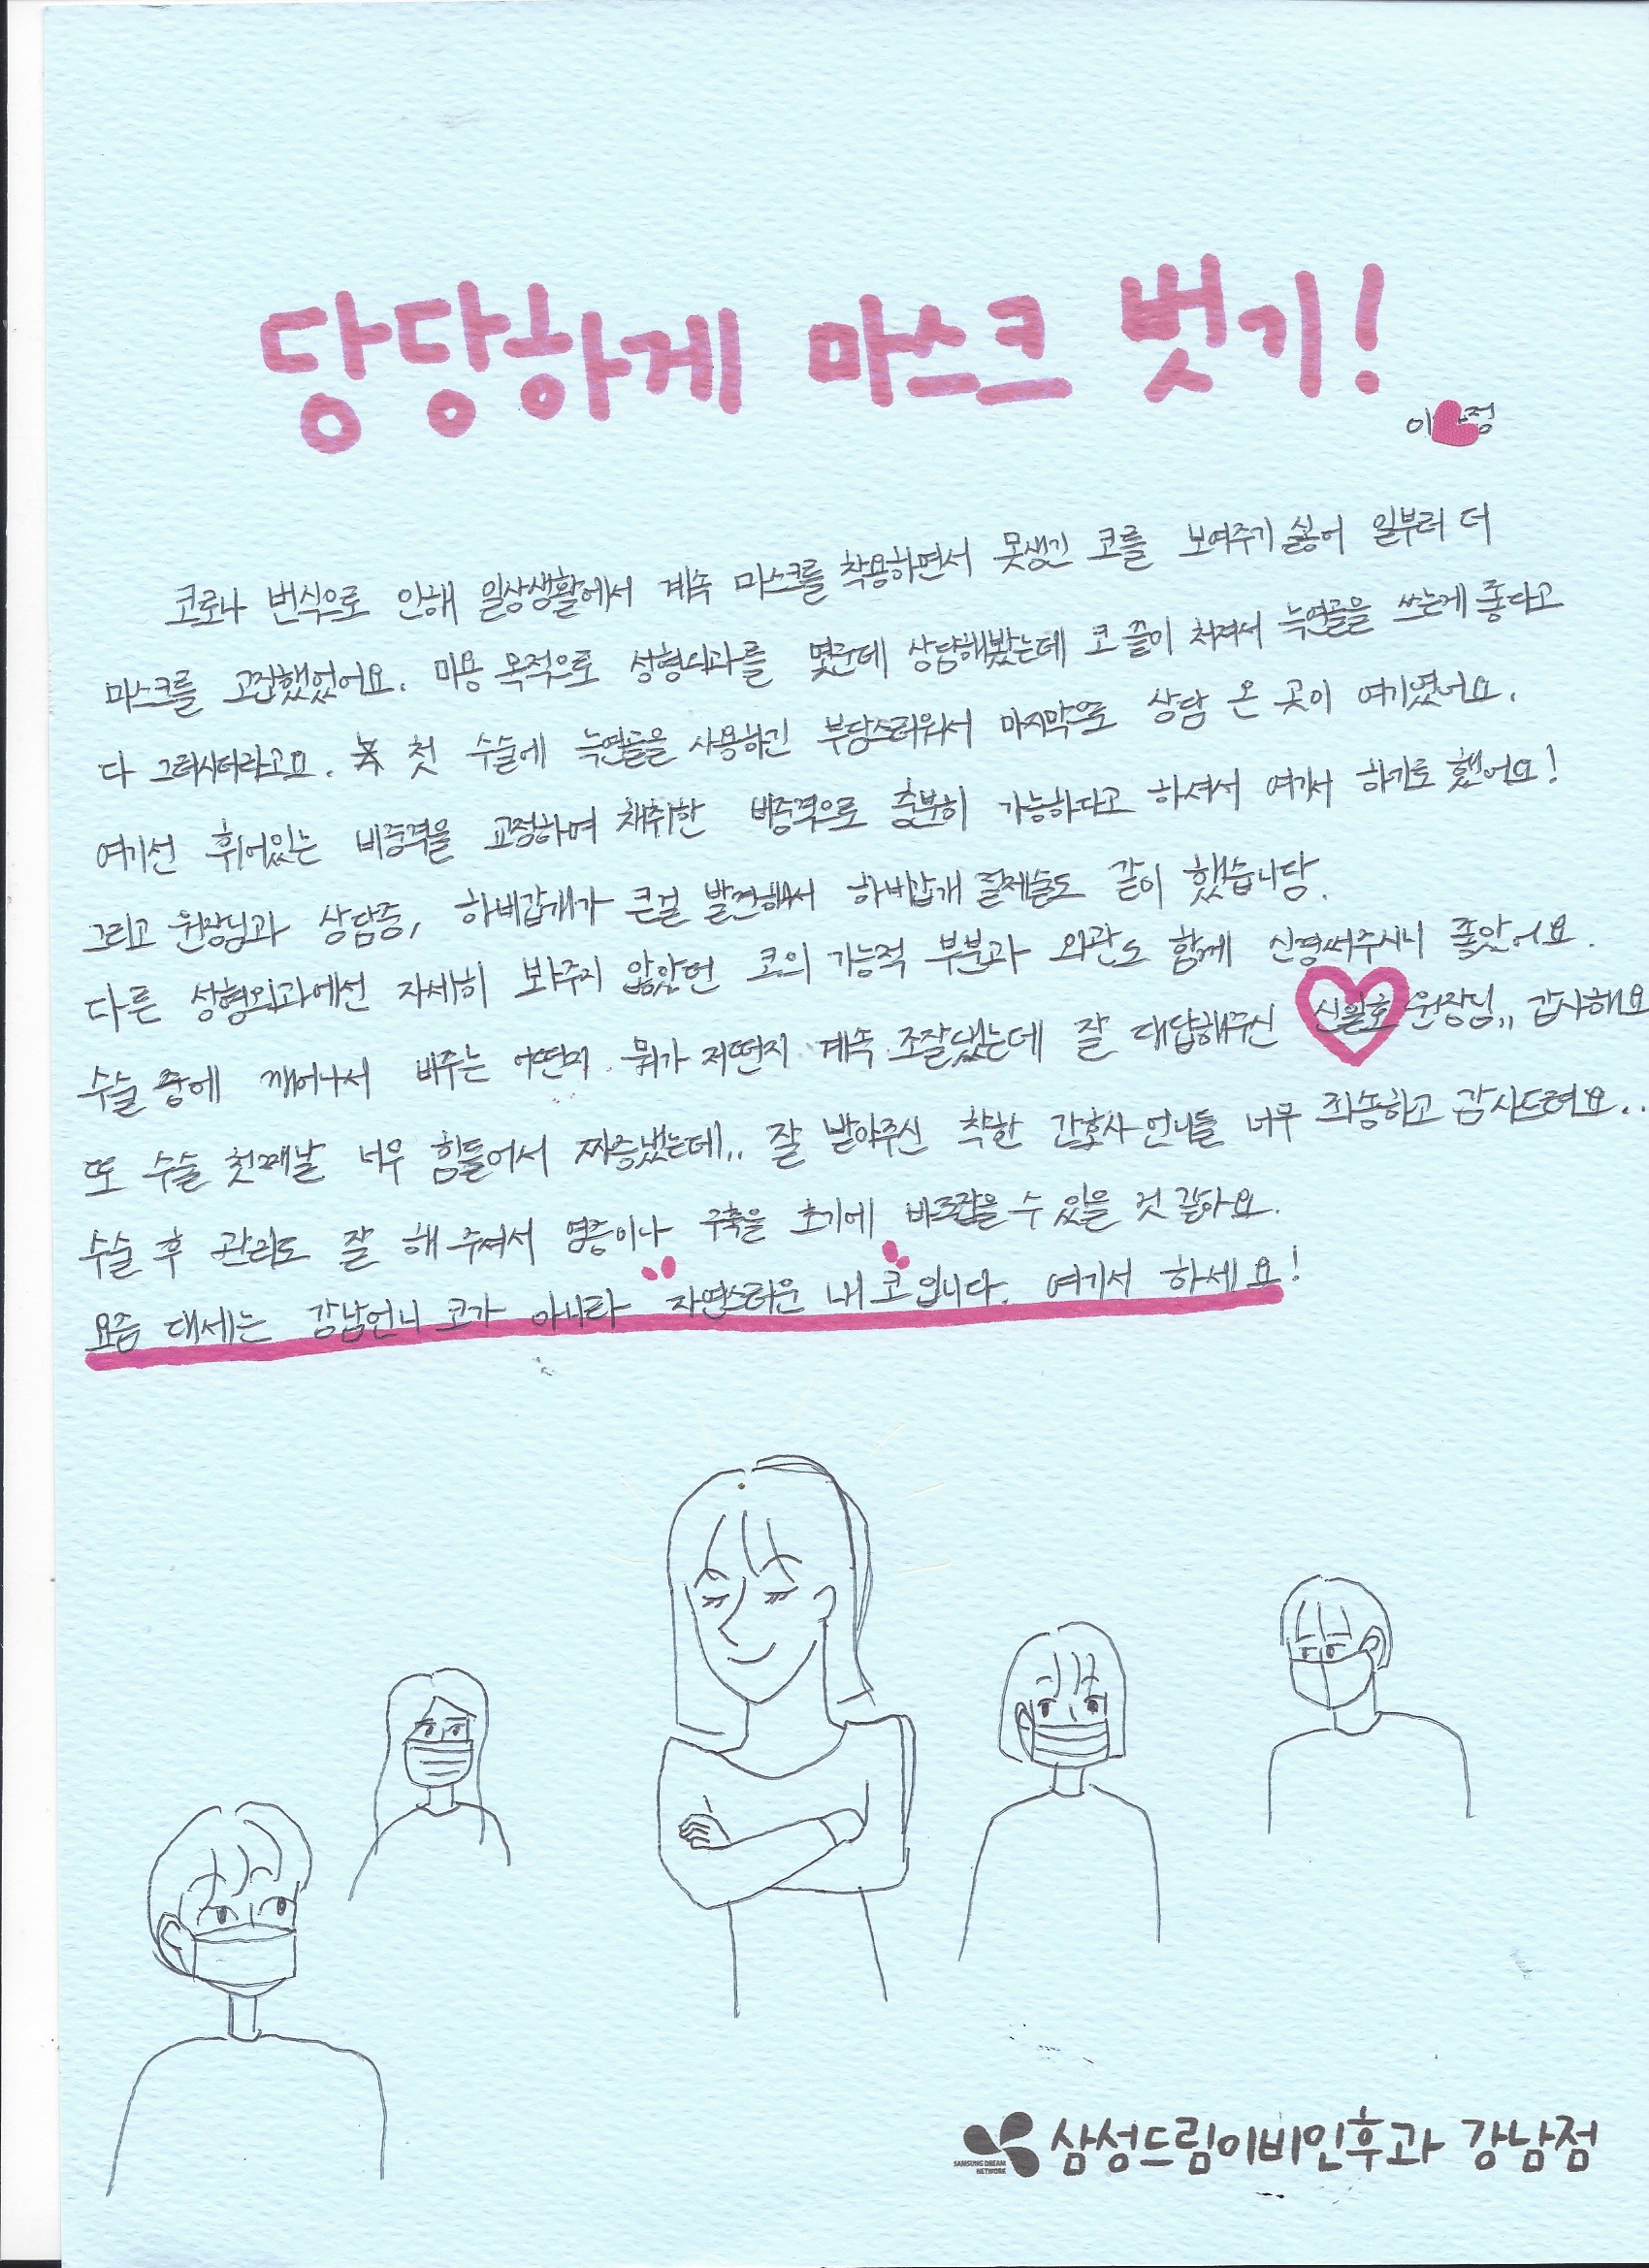 당당하게 마스크 벗기!
이 정
코로나 번식으로 인해 일상생활에서 계속 마스크를 착용하면서 못생긴 코를 보여주기 싫어 일부러 더
마스크를 고집했었어요. 미용 목적으로 성형외과를 몇군데 상담해봤는데 코 끝이 처져서 늑연골을 쓰는게 좋다고
다 그러시더라고요. 첫 수술에 늑연골을 사용하긴 부담스러워서 마지막으로 상담 온 곳이 여기였어요.
여기선 휘어있는 비중격을 교정하여 채취한 비중격으로 충분히 가능하다고 하셔서 여기서 하기로 했어요!
그리고 원장님과 상담중, 하비갑개가 큰걸 발견해서 하비갑개 절제술도 같이 했습니당.
다른 성형외과에선 자세히 봐주지 않았던 코의 기능적 부분과 외관도 함께 신경써주시니 좋았어요.
수술 중에 깨어나서 비주는 어떤지 뭐가 저떤지 계속 조잘댔는데 잘 대답해주신 원장님,, 감사해요
또 수술 첫째날 너무 힘들어서 짜증냈는데,, 잘 받아주신 착한 간호사 언니들 너무 죄송하고 감사드려요..
수술 후 관리도 잘 해 주셔서 염증이나 구축을 초기에 바로잡을 수 있을 것 같아요.
요즘 대세는 강남언니 코가 아니라 자연스러운 내 코입니다. 여기서 하세요!
SAMSUNG DREAM
NETWORK
삼성드림이비인후과 강남점